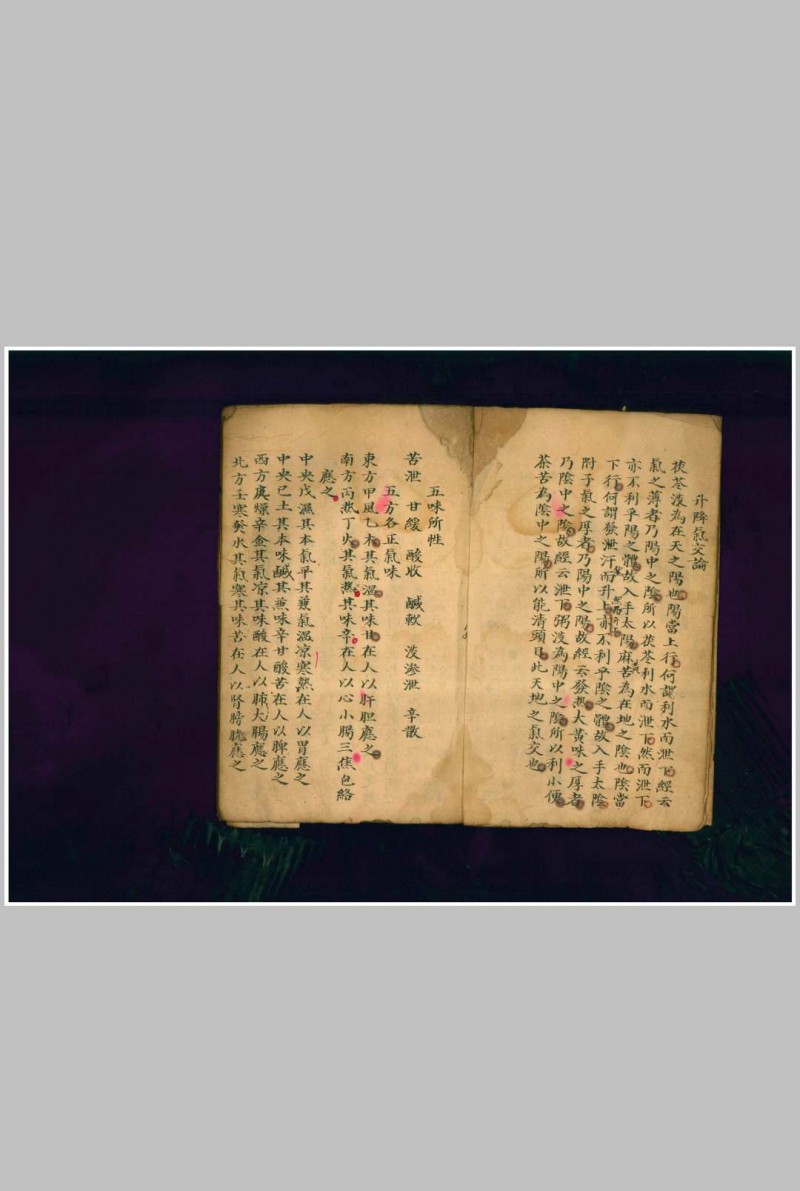 升降氣交論
茯苓淡為在天之陽也陽當上行何謂利水而泄下經云
氣之薄者乃陽中之陰所以茯苓利水而泄下然而泄下
亦不利乎陽之體故入手太陽麻苦為在地之陰也陰當
下行何謂發泄汗而升上亦不利乎陰之體故入手太陰
附子氣之厚者乃陽中之陽故經云發熱大黃味之厚者
乃陰中之陰故經云泄下粥淡為陽中之陰所以利小便
茶苦為陰中之陽所以能清頭目此天地之氣交也
五味所性
苦泄 甘緩 酸收 鹹軟 淡滲泄 辛散
五方各正氣味
東方甲風乙木其氣溫其味甘在人以肝胆應之
南方丙熱丁火其氣熱其味辛在人以心小腸三焦包絡
應之
中央戊濕其本氣平其兼氣溫凉寒熱在人以胃應之
中央己土其本味鹹其兼味辛甘酸苦在人以脾應之
西方庚燥辛金其氣凉其味酸在人以肺大腸應之
北方壬寒癸水其氣寒其味苦在人以腎膀胱應之